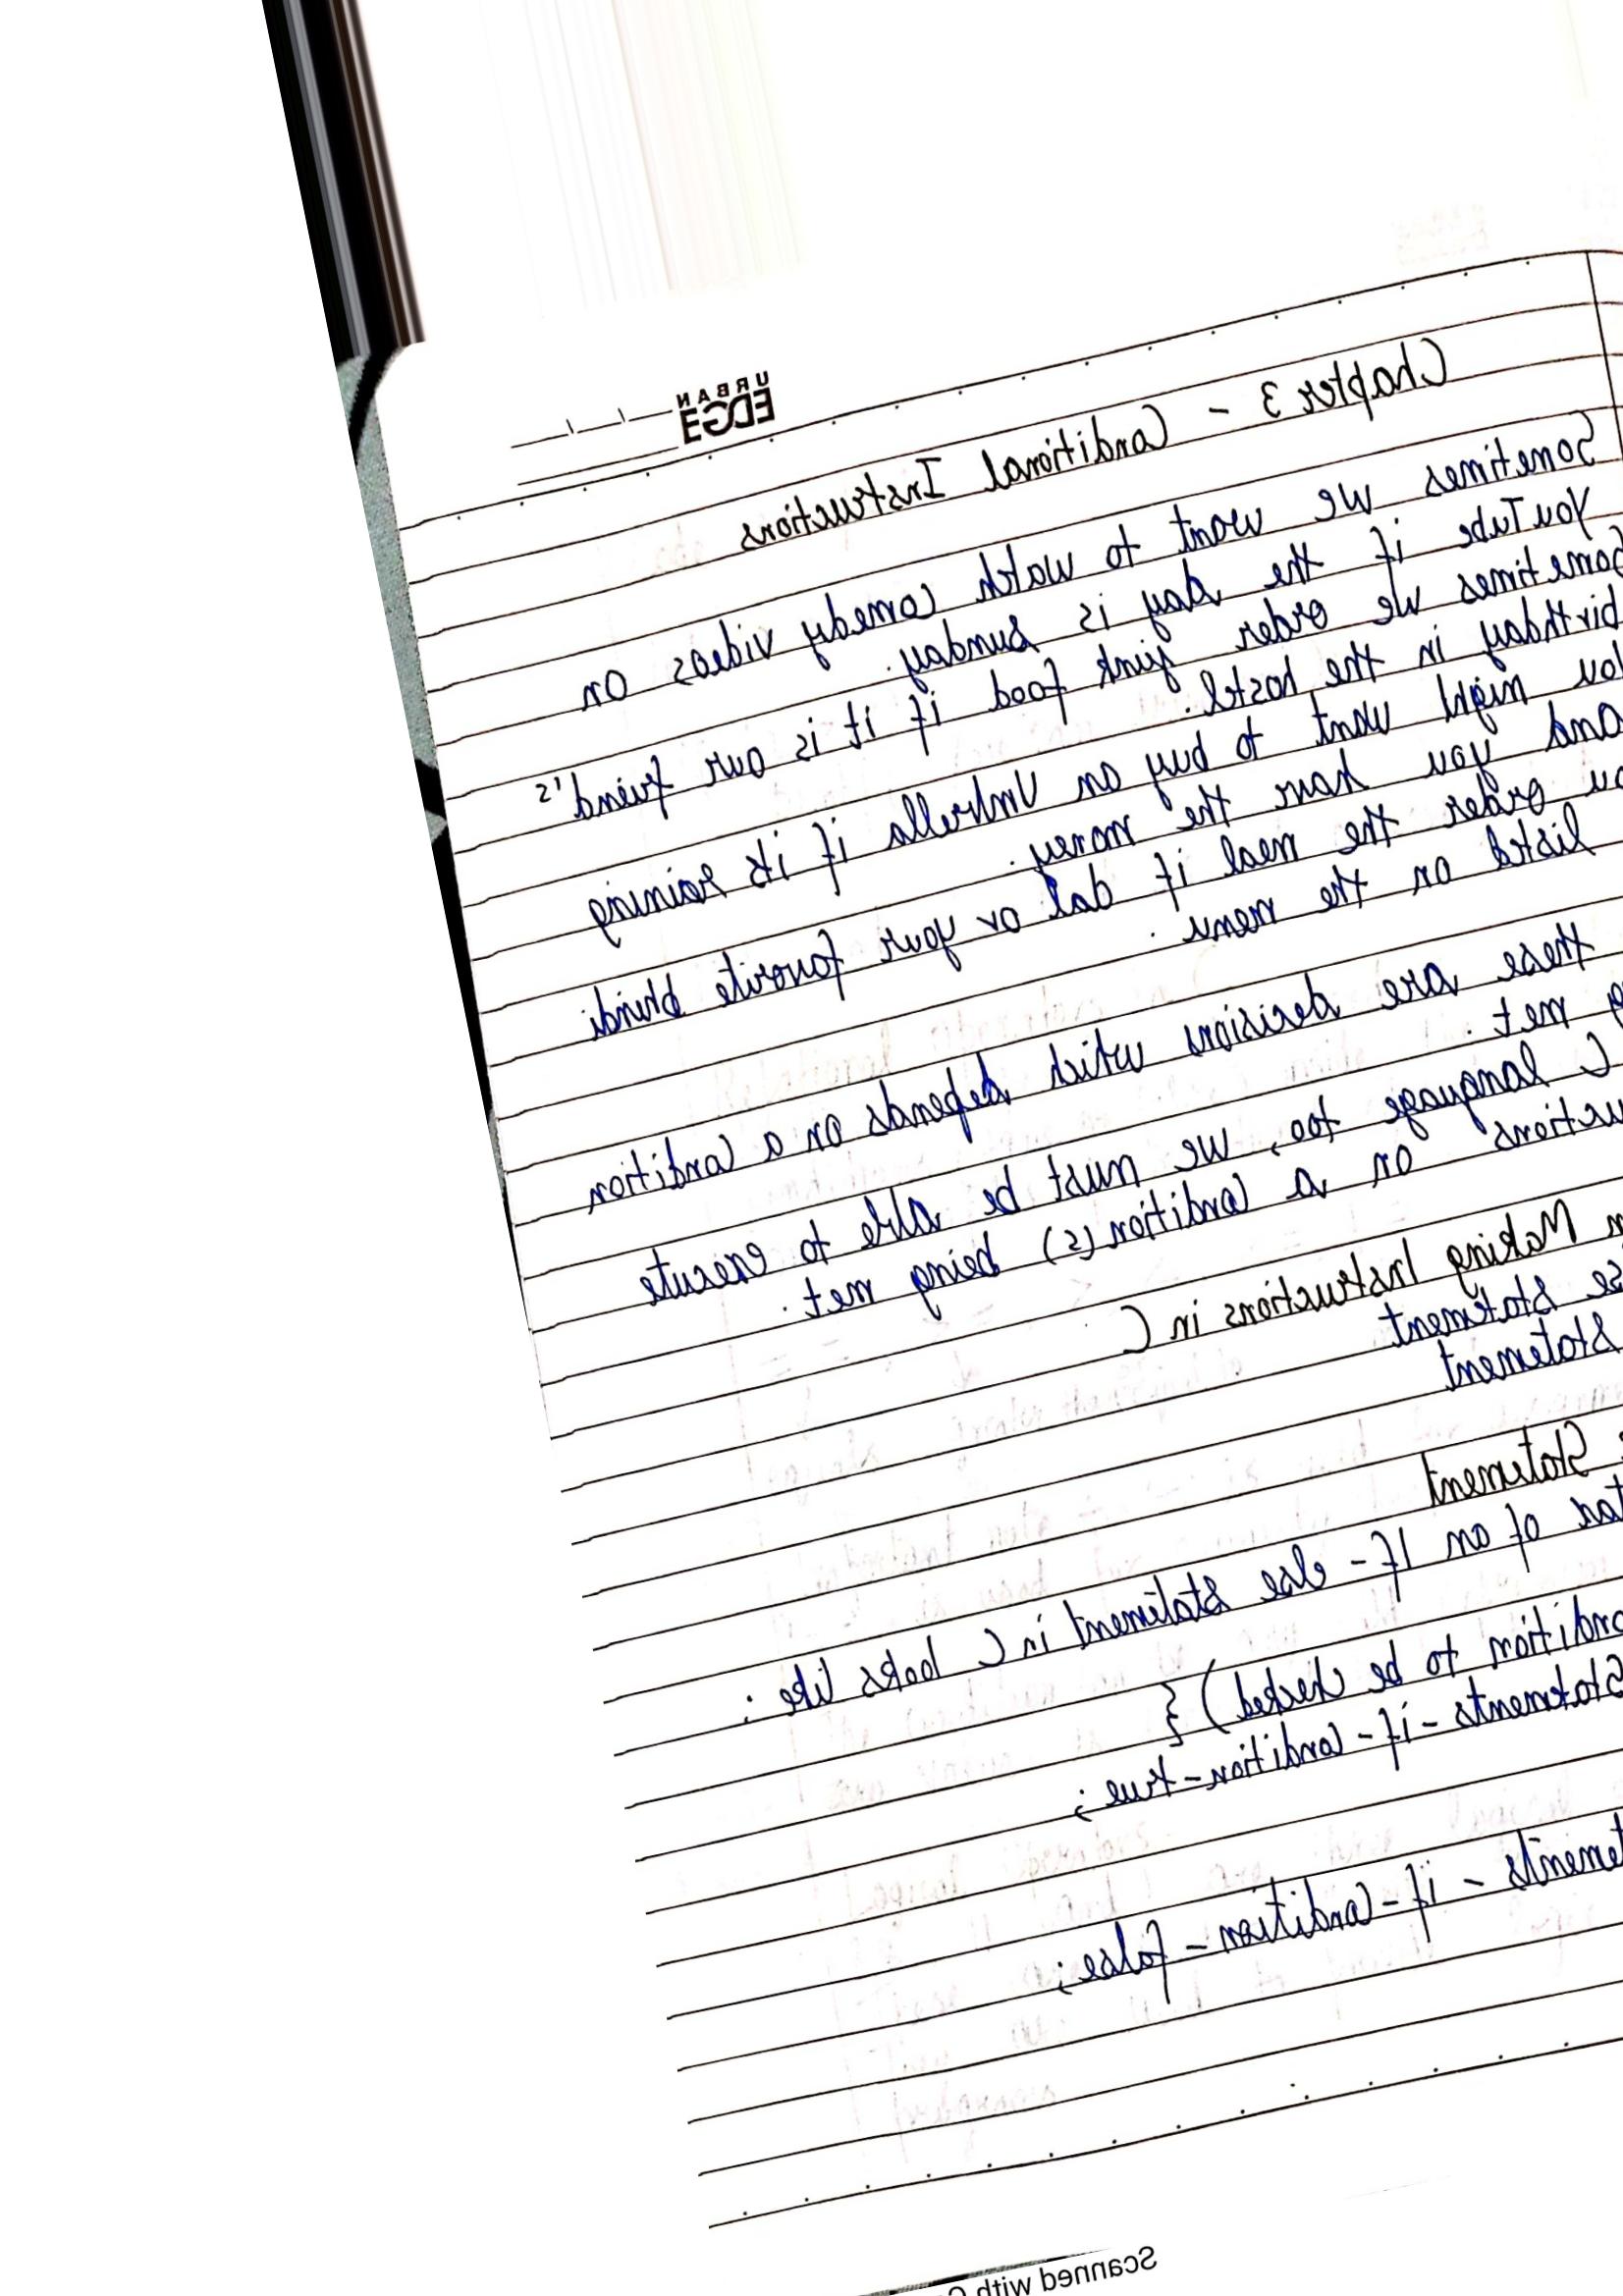 URBAN
EDGE
Chapter 3 - Conditional Instructions
Sometimes we want to watch comedy videos on
YouTube if the day is sunday.
Sometimes we order junk food if it is our friend's
birthday in the hostel.
might want to buy an Umbrella if its raining
and you have the money.
order the meal if dal or your favorite bhindi
listed on the menu.
these are decisions which depends on a condition
met.
C language too, we must be able to execute
on a condition(s) being met.
Making Instructions in C
Statement
Statement
Statement
of an If - else statement in C looks like :
to be checked) {
Statements - if - condition - true ;
- if - condition - false ;
Scanned with